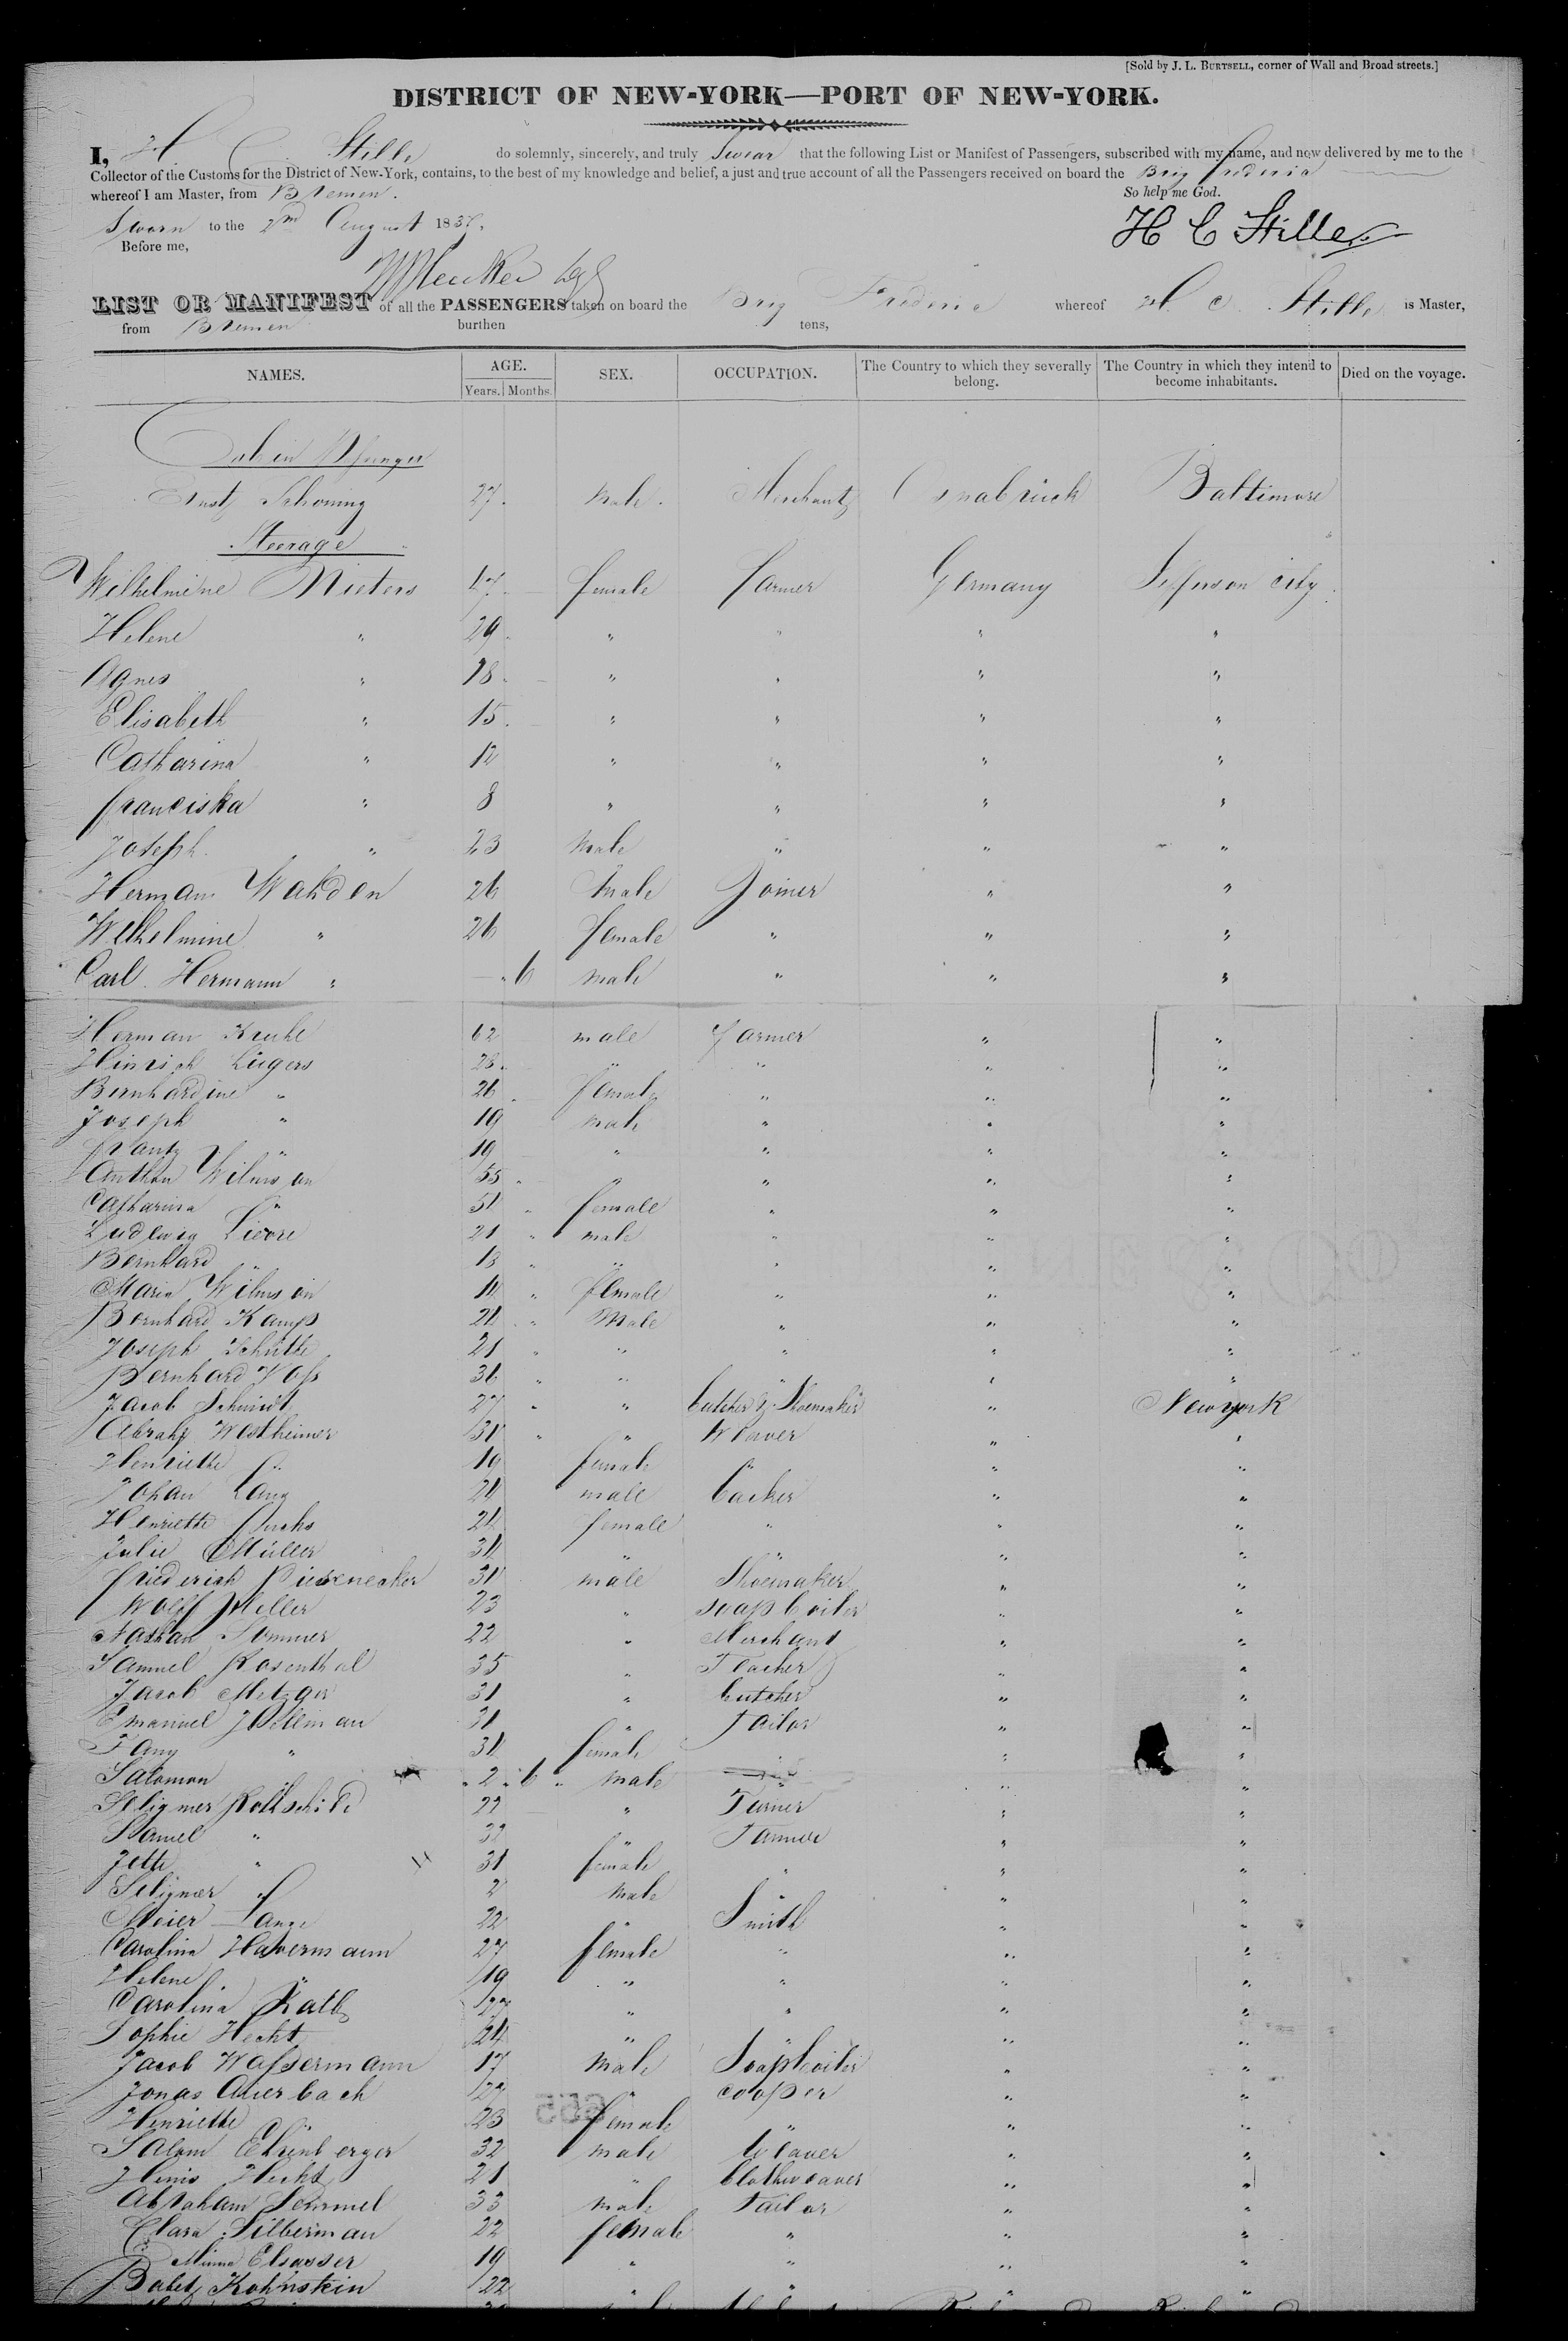 [Sold by J. L. BURTSELL, corner of Wall and Broad streets.]
DISTRICT OF NEW-YORK—PORT OF NEW-YORK.
I, H. C. Stille do solemnly, sincerely, and truly Swear that the following List or Manifest of Passengers, subscribed with my name, and now delivered by me to the
Collector of the Customs for the District of New-York, contains, to the best of my knowledge and belief, a just and true account of all the Passengers received on board the Brig
whereof I am Master, from Bremen. So help me God.
Sworn to the 2nd August 183
Before me, H C Stille
LIST OR MANIFEST of all the PASSENGERS taken on board the Brig whereof H. C. Stille is Master,
from Bremen burthen tons,
NAMES. AGE. Years. Months. SEX. OCCUPATION. The Country to which they severally belong. The Country in which they intend to become inhabitants. Died on the voyage.
Cabin
Ernst Schoning 27. male. Merchant Osnabrück Baltimore
Steerage
Wilhelmine Mieters 47. female farmer Germany Jefferson city
Helene " 29. " " " "
Agnes " 18. " " " "
Elisabeth " 15. " " " "
Catharina " 12 " " " "
franciska " 8 " " " "
Joseph " 23 male " " "
Herman Wahden 26 male Joiner " "
Wilhelmine " 26 female " " "
Carl Hermann " - " 6 male " " "
Herman Kruhl 62 male farmer " "
Hinrich Lügers 28. " " " "
Bernhardine " 26 female " " "
Joseph " 19 male " " "
frantz " 19 " " " "
Anthon 55 " " " "
Catharina " 51 female " " "
Ludewig 21 male " " "
Bernhard " 13 " " " "
Maria 11 female " " "
Bernhard Kamp 21 Male " " "
Joseph Schütte 21 " " " "
Bernhard Voss 31 " " " "
Jacob Schmidt 27 " butcher & Shoemaker " New york
Westheimer 31 " Weaver " "
Henriette " 19 female " " "
Johan Lang 24 male backer " "
Henriette fuchs 24 female " " "
Julie Müller 31 " " " "
friederich 31 male Shoemaker " "
Wolff Heller 23 " soapboiler " "
Nathan Sommer 22 " Merchant " "
Samuel Rosenthal 35 " Teacher " "
Jacob Metzger 31 " butcher " "
Emanuel 31 " Tailor " "
Fany " 31 female " " "
Salomon " 2 " 6 male " " "
Seligmer Rothschild 22 " Turner " "
Samel " 32 " Farmer " "
Jette " 31 female " " "
Seligmer " 2 male " " "
Meier Lange 22 " Smith " "
Carolina Havermann 27 female " " "
Helene " 19 " " " "
Carolina Katz 27 " " " "
Sophie Hecht 24 " " " "
Jacob Wassermann 17 male Soapboiler " "
Jonas Auerbach 27 " cooper " "
Henriette " 23 female " " "
Salom Ehrenberger 32 male Weaver " "
Hecht 21 " Clothweaver " "
Abraham 33 male Tailor " "
Clara Silberman 22 female " " "
Minna Elsasser 19 " " " "
Babet Kohnstein 22 " " " "
665